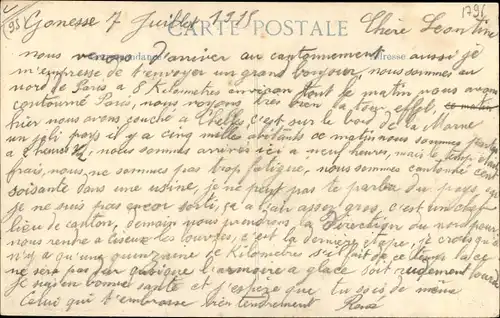 (95) Gonesse 7 Juillet 1915 CARTE POSTALE Chère Leontine 1796
Correspondance Adresse
nous venons d'ariver au cantonnement aussi je
m'empresse de t'envoyer un grand bonjour, nous sommes au
nord de Paris a 8 Kilometres environ tout le matin nous avons
contourné Paris, nous voyons tres bien la tour effel, ce matin
hier nous avons couché a Chelles c'est sur le bord de la Marne
un joli pays il y a cinq milles abitants ce matin nous sommes partis
a 2 heures 1/2, nous sommes arrives ici a neuf heures, mais le temp etait
frais, nous ne sommes pas trop fatigue, nous sommes cantonné cent
soisante dans une usine, je ne peut pas te parler du pays car
je ne suis pas encor sorti, ça a l'air asser gros, c'est un chef
lieu de canton, demain nous prendrons la direction du nord pour
nous rendre a Liseux les lourges, c'est la derniere etape, je crois qu'il
n'y a qu'une quinzaine de Kilometres s'il fait de ce temp la ce
ne sera pas dur quoique l'armoire a glace soit rudement lourde
je suis en bonne santé et j'espere que tu sois de même
Celui qui t'embrasse bien tendrement René